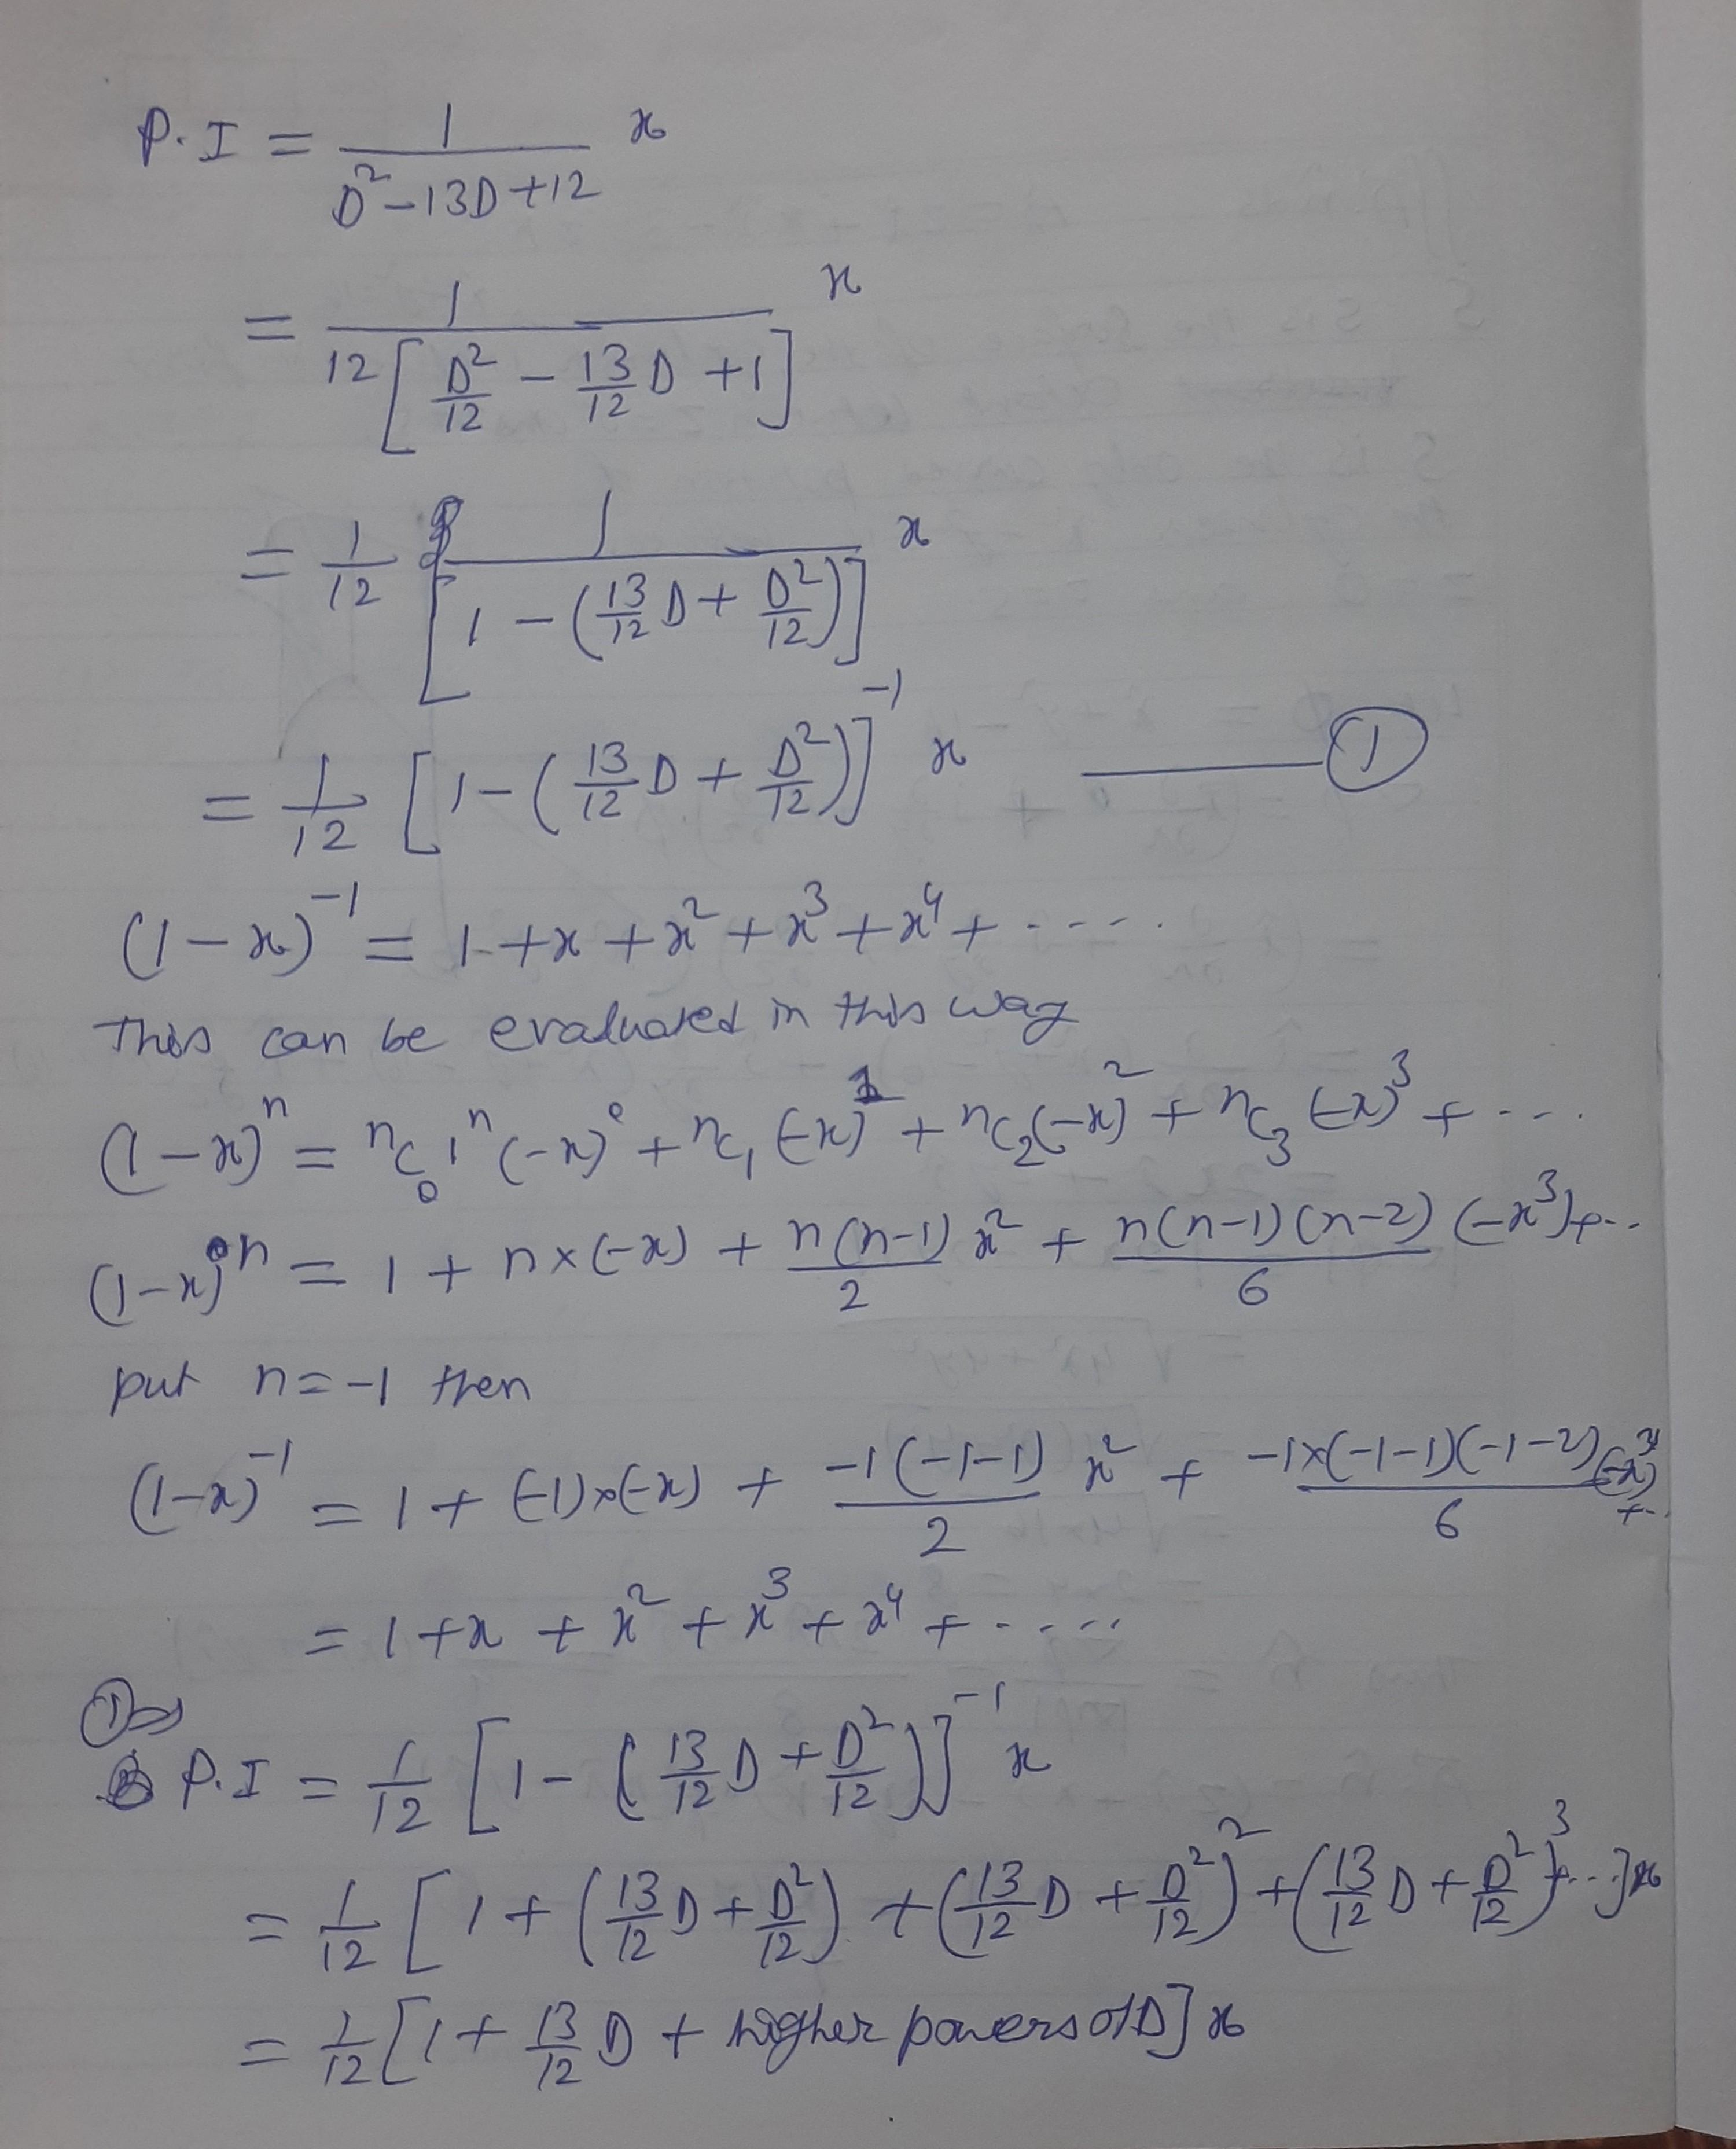 P.I = 1/(D²-13D+12) x
= 1/(12[D²/12 - 13/12 D +1]) x
= 1/12 1/[1-(13/12 D + D²/12)] x
= 1/12 [1-(13/12 D + D²/12)]⁻¹ x ——— ①
(1-x)⁻¹ = 1+x+x²+x³+x⁴+----.
This can be evaluated in this way
(1-x)ⁿ = ⁿC₀ 1ⁿ (-x)⁰ + ⁿC₁ (-x)¹ + ⁿC₂(-x)² + ⁿC₃ (-x)³ + ----
(1-x)ⁿ = 1 + n×(-x) + n(n-1)/2 x² + n(n-1)(n-2)/6 (-x³)+--
put n=-1 then
(1-x)⁻¹ = 1 + (-1)×(-x) + -1(-1-1)/2 x² + -1×(-1-1)(-1-2)/6 (-x)³ +--
= 1+x + x² + x³ + x⁴ + -----
①⇒
P.I = 1/12 [1-(13/12 D + D²/12)]⁻¹ x
= 1/12 [1 + (13/12 D + D²/12) + (13/12 D + D²/12)² + (13/12 D + D²/12)³+--]x
= 1/12 [1 + 13/12 D + higher powers of D] x